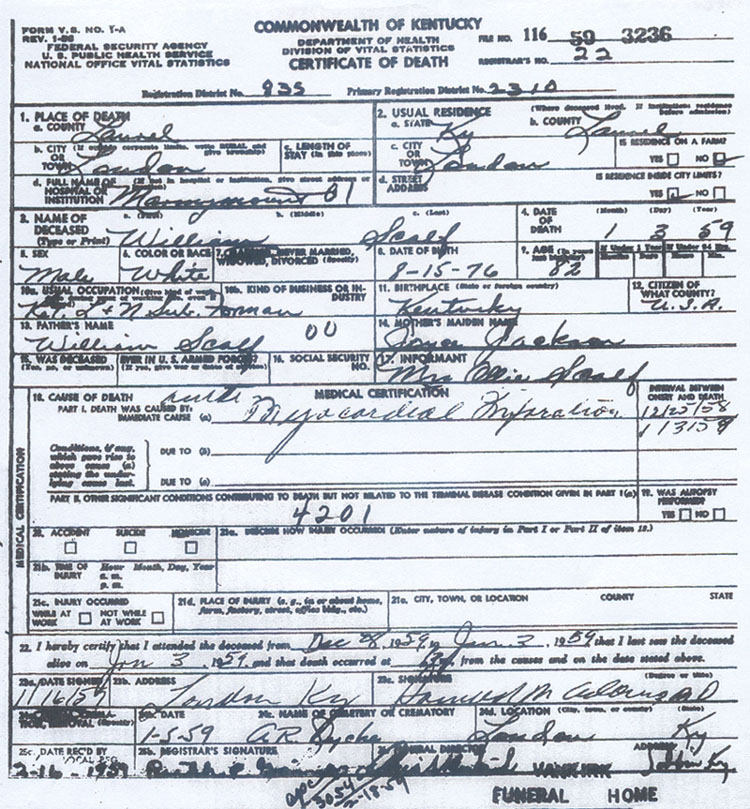 FORM V.S. NO. 1-A
REV. 1-56
FEDERAL SECURITY AGENCY
U. S. PUBLIC HEALTH SERVICE
NATIONAL OFFICE VITAL STATISTICS
COMMONWEALTH OF KENTUCKY
DEPARTMENT OF HEALTH
DIVISION OF VITAL STATISTICS
CERTIFICATE OF DEATH
FILE NO. 116 59 3236
REGISTRAR'S NO. 22
Registration District No. 835 Primary Registration District No. 2310
1. PLACE OF DEATH
a. COUNTY Laurel
2. USUAL RESIDENCE (Where deceased lived. If institution: residence before admission)
a. STATE Ky b. COUNTY Laurel
b. CITY (If outside corporate limits, write RURAL and give township)
OR
TOWN London
c. LENGTH OF STAY (in this place)
c. CITY
OR
TOWN London
IS RESIDENCE ON A FARM?
YES NO
d. FULL NAME OF (If not in hospital or institution, give street address or
HOSPITAL OR
INSTITUTION Marymount
d. STREET
ADDRESS
IS RESIDENCE INSIDE CITY LIMITS?
YES NO
3. NAME OF DECEASED (Type or Print)
a. (First) b. (Middle) c. (Last)
William Scalf
4. DATE OF DEATH (Month) (Day) (Year)
1 3 59
5. SEX
Male
6. COLOR OR RACE
White
7. NEVER MARRIED, WIDOWED, DIVORCED (Specify)
8. DATE OF BIRTH
8-15-76
9. AGE (In years last birthday)
82
If Under 1 Year If Under 24 Hrs.
Months Days Hours Min.
10a. USUAL OCCUPATION (Give kind of work
Ret. L & N Sub. Forman
10b. KIND OF BUSINESS OR INDUSTRY
11. BIRTHPLACE (State or foreign country)
Kentucky
12. CITIZEN OF WHAT COUNTRY?
U.S.A.
13. FATHER'S NAME
William Scalf
00
14. MOTHER'S MAIDEN NAME
Jackson
15. WAS DECEASED EVER IN U. S. ARMED FORCES?
(Yes, no, or unknown) (If yes, give war or dates of service)
16. SOCIAL SECURITY NO.
17. INFORMANT
Mrs Scalf
18. CAUSE OF DEATH
MEDICAL CERTIFICATION
INTERVAL BETWEEN ONSET AND DEATH
PART I. DEATH WAS CAUSED BY:
IMMEDIATE CAUSE (a) Myocardial Infaration
12/25/58
1/3/59
Conditions, if any, which gave rise to above cause (a) stating the underlying cause last.
DUE TO (b)
DUE TO (c)
MEDICAL CERTIFICATION
PART II. OTHER SIGNIFICANT CONDITIONS CONTRIBUTING TO DEATH BUT NOT RELATED TO THE TERMINAL DISEASE CONDITION GIVEN IN PART I (a)
4201
19. WAS AUTOPSY PERFORMED?
YES NO
20. ACCIDENT SUICIDE HOMICIDE
21a. DESCRIBE HOW INJURY OCCURRED? (Enter nature of injury in Part I or Part II of item 18.)
21b. TIME OF INJURY Hour Month, Day, Year
a. m.
p. m.
21c. INJURY OCCURRED
WHILE AT WORK NOT WHILE AT WORK
21d. PLACE OF INJURY (e. g., in or about home, farm, factory, street, office bldg., etc.)
21e. CITY, TOWN, OR LOCATION COUNTY STATE
22. I hereby certify that I attended the deceased from Dec 28, 1959, Jan 3, 1959 that I last saw the deceased
alive on Jan 3, 1959 and that death occurred at from the causes and on the date stated above.
23a. DATE SIGNED
1/16/59
23b. ADDRESS
London Ky
23c. SIGNATURE (Degree or title)
24b. DATE
1-5-59
24c. NAME OF CEMETERY OR CREMATORY
A.R. Dyche
24d. LOCATION (City, town, or county) (State)
London Ky
25a. DATE REC'D BY LOCAL REG.
2-16-1959
25b. REGISTRAR'S SIGNATURE
FUNERAL DIRECTOR
VANKIRK
ADDRESS
Ky
2-18-59
FUNERAL HOME